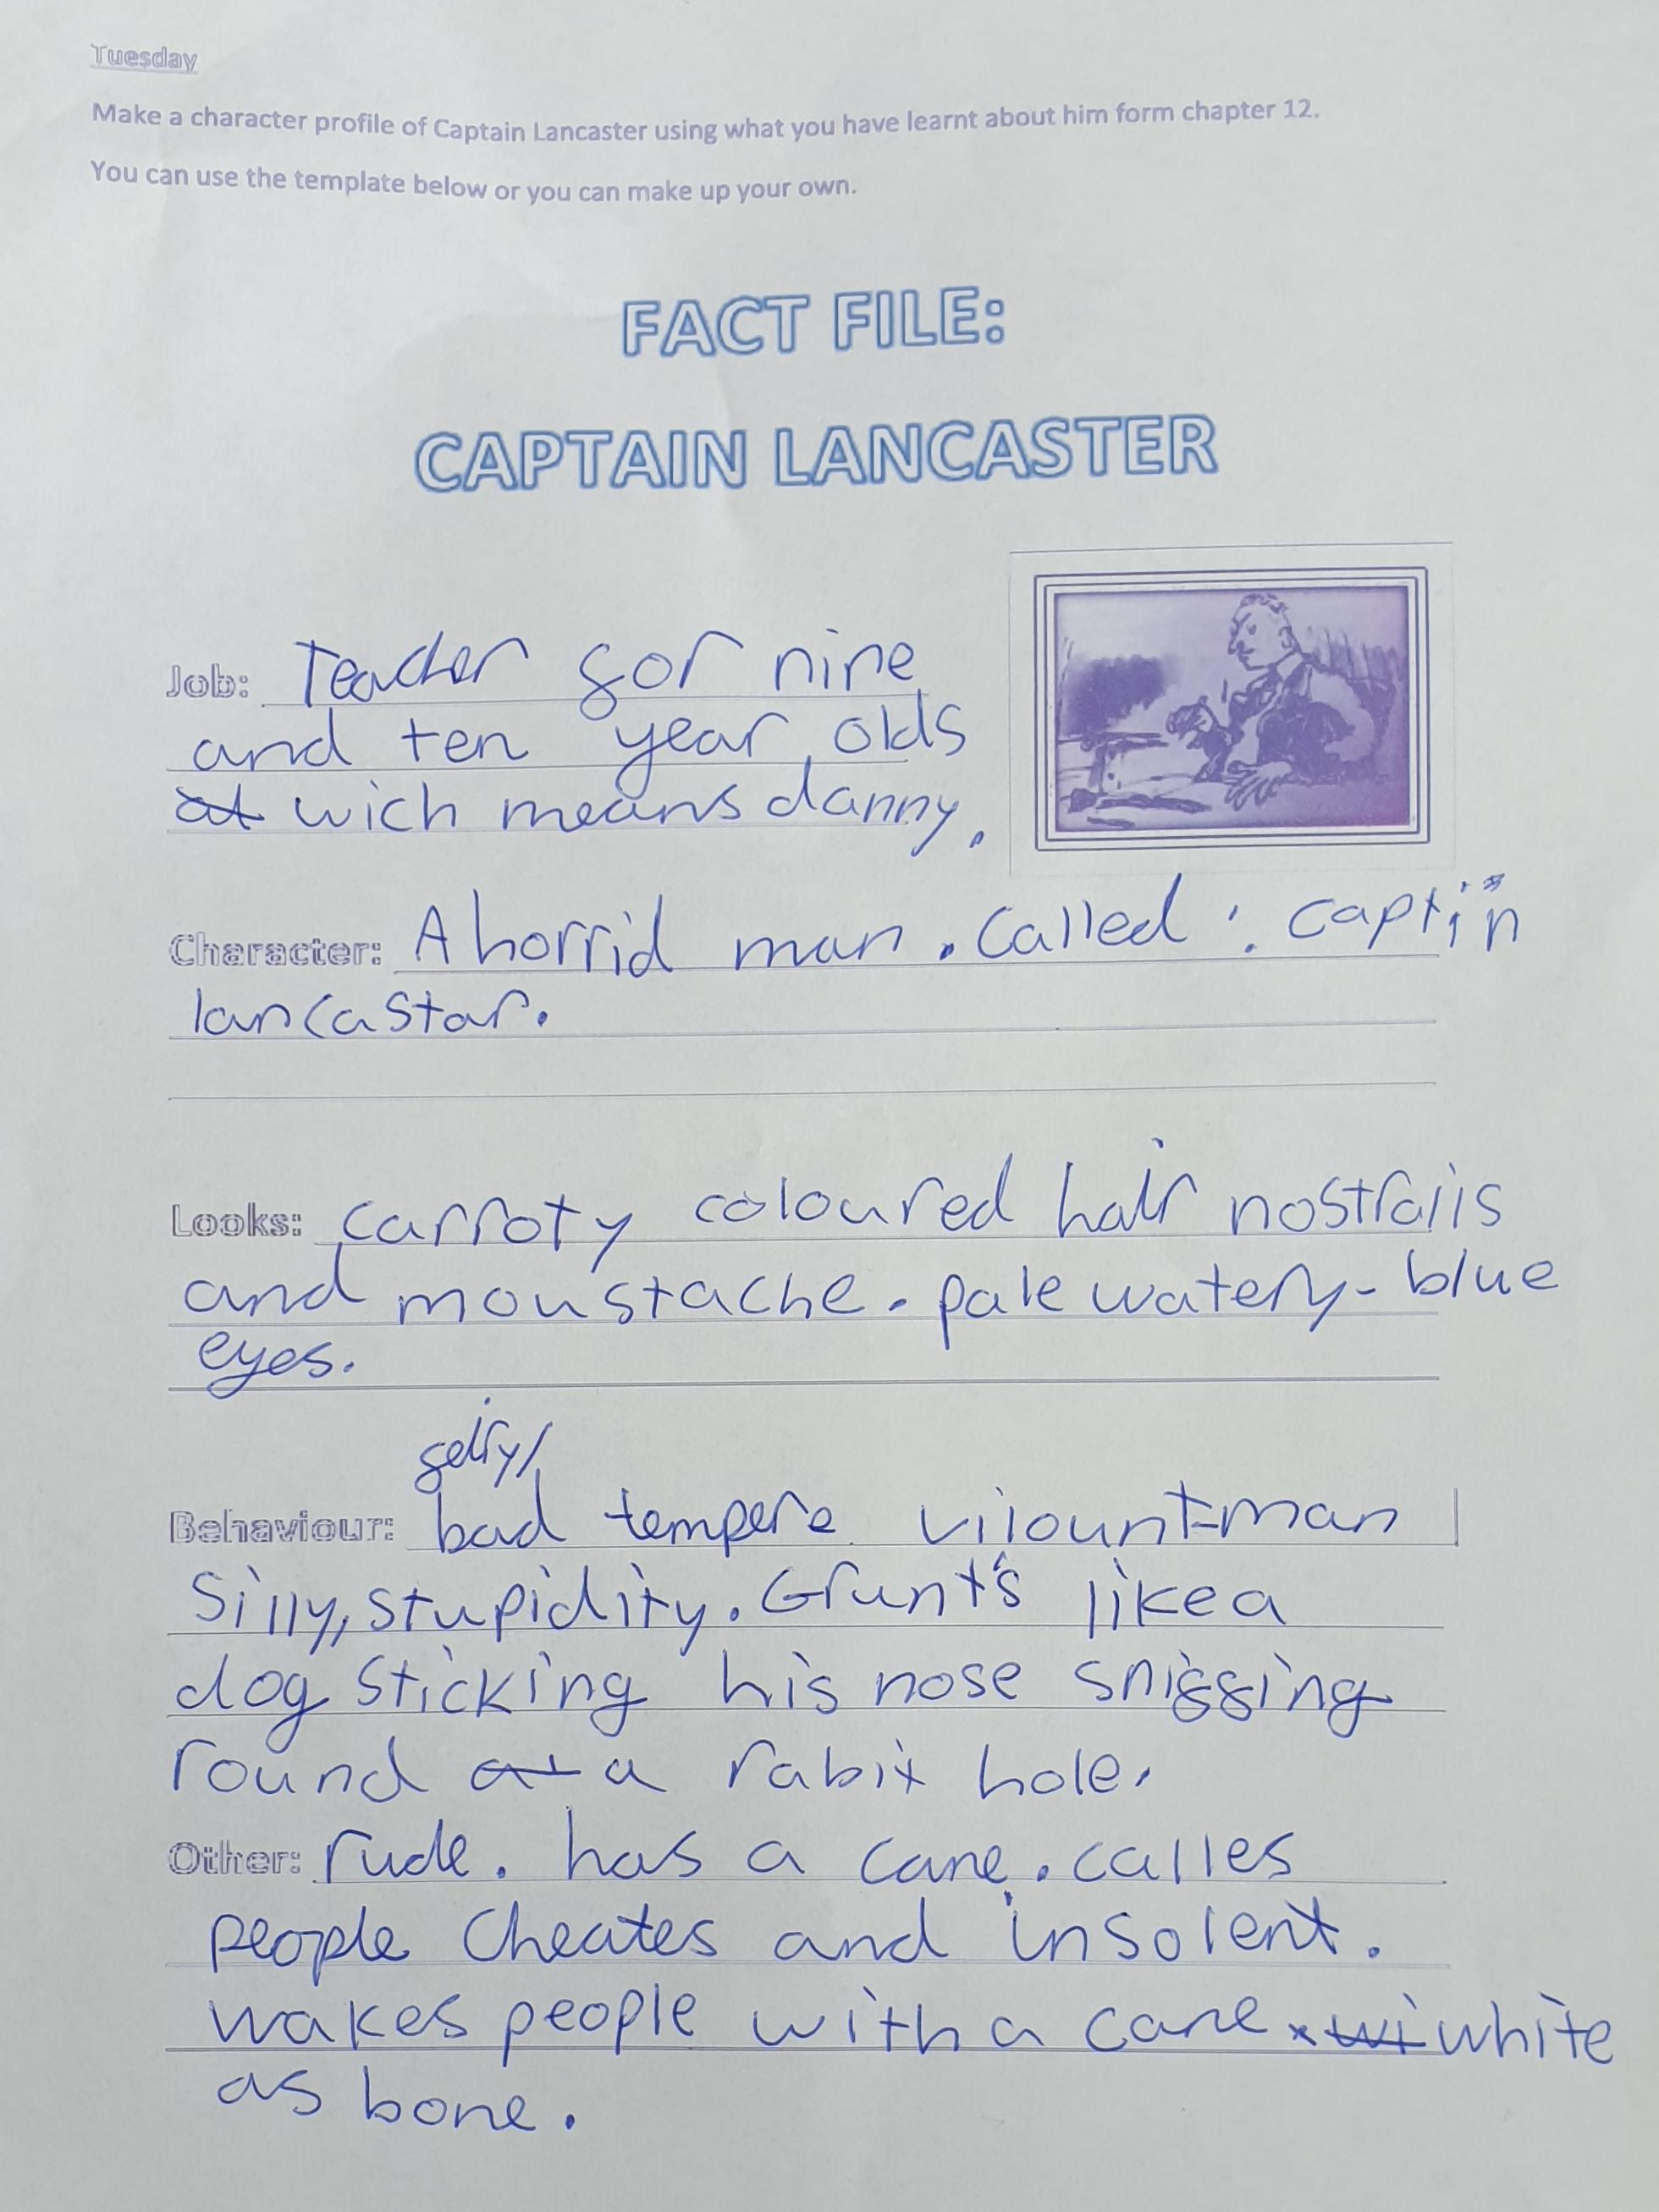 Tuesday
Make a character profile of Captain Lancaster using what you have learnt about him form chapter 12.
You can use the template below or you can make up your own.
FACT FILE:
CAPTAIN LANCASTER
Job: Teacher for nine
and ten year olds
at wich means danny.
Character: A horrid man. Called : captin
lancastar.
Looks: carroty coloured hair nostrails
and moustache. pale watery-blue
eyes.
Behaviour: bad tempere vilount-man
Silly, stupidity. Grunt's like a
dog sticking his nose sniffing
round at a rabit hole.
Other: rude. has a cane. calles
people cheates and insolent.
wakes people with a cane wi white
as bone.